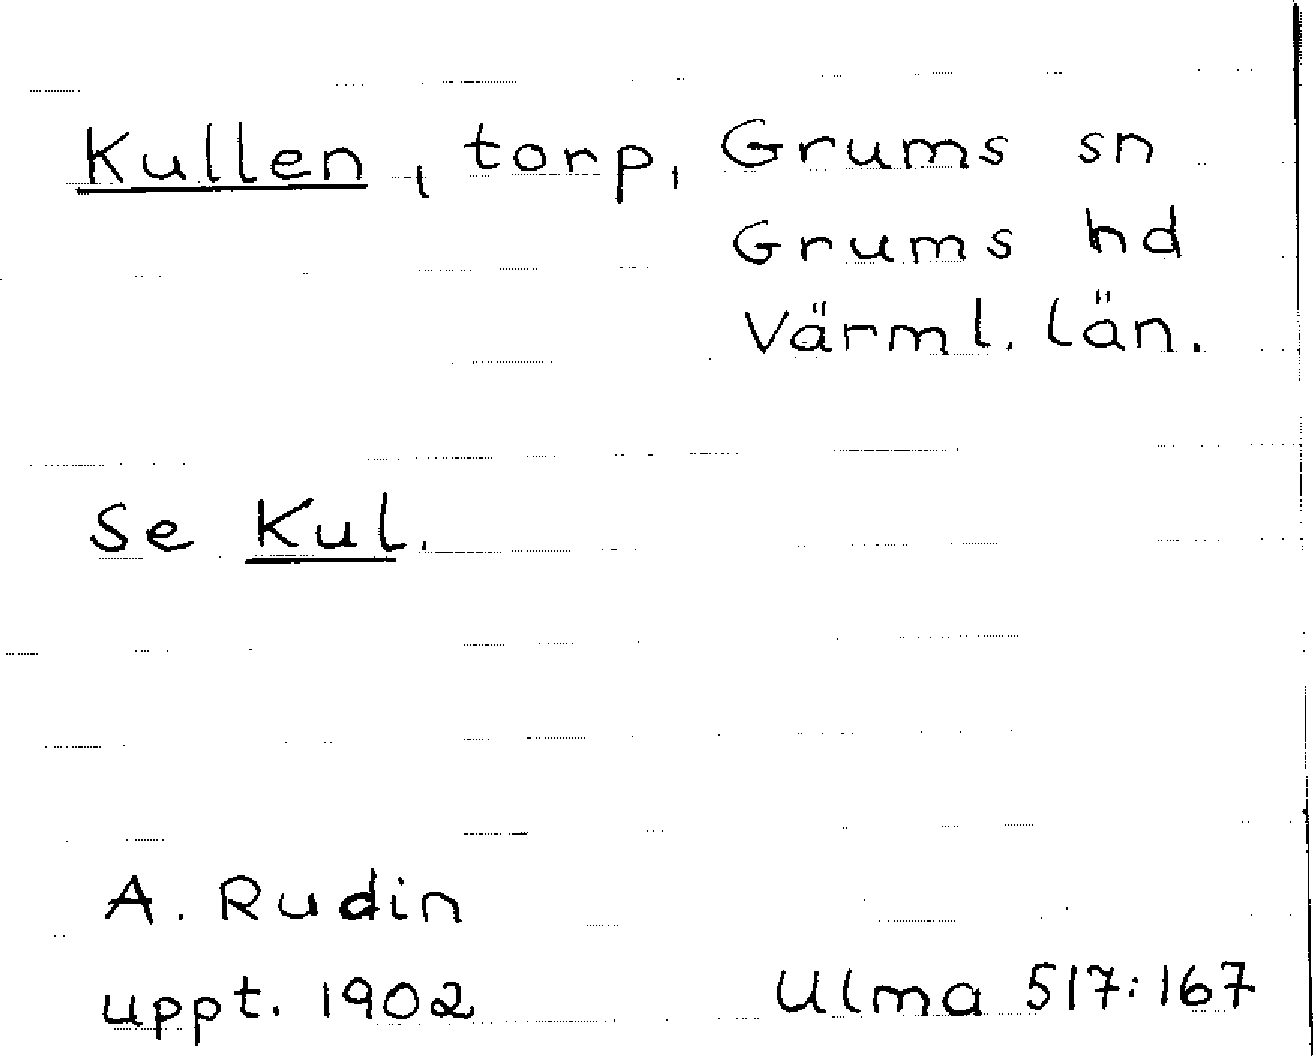 Kullen, torp, Grums sn
Grums hd
Värml. län.
Se Kul.
A. Rudin
uppt. 1902
Ulma 517:167